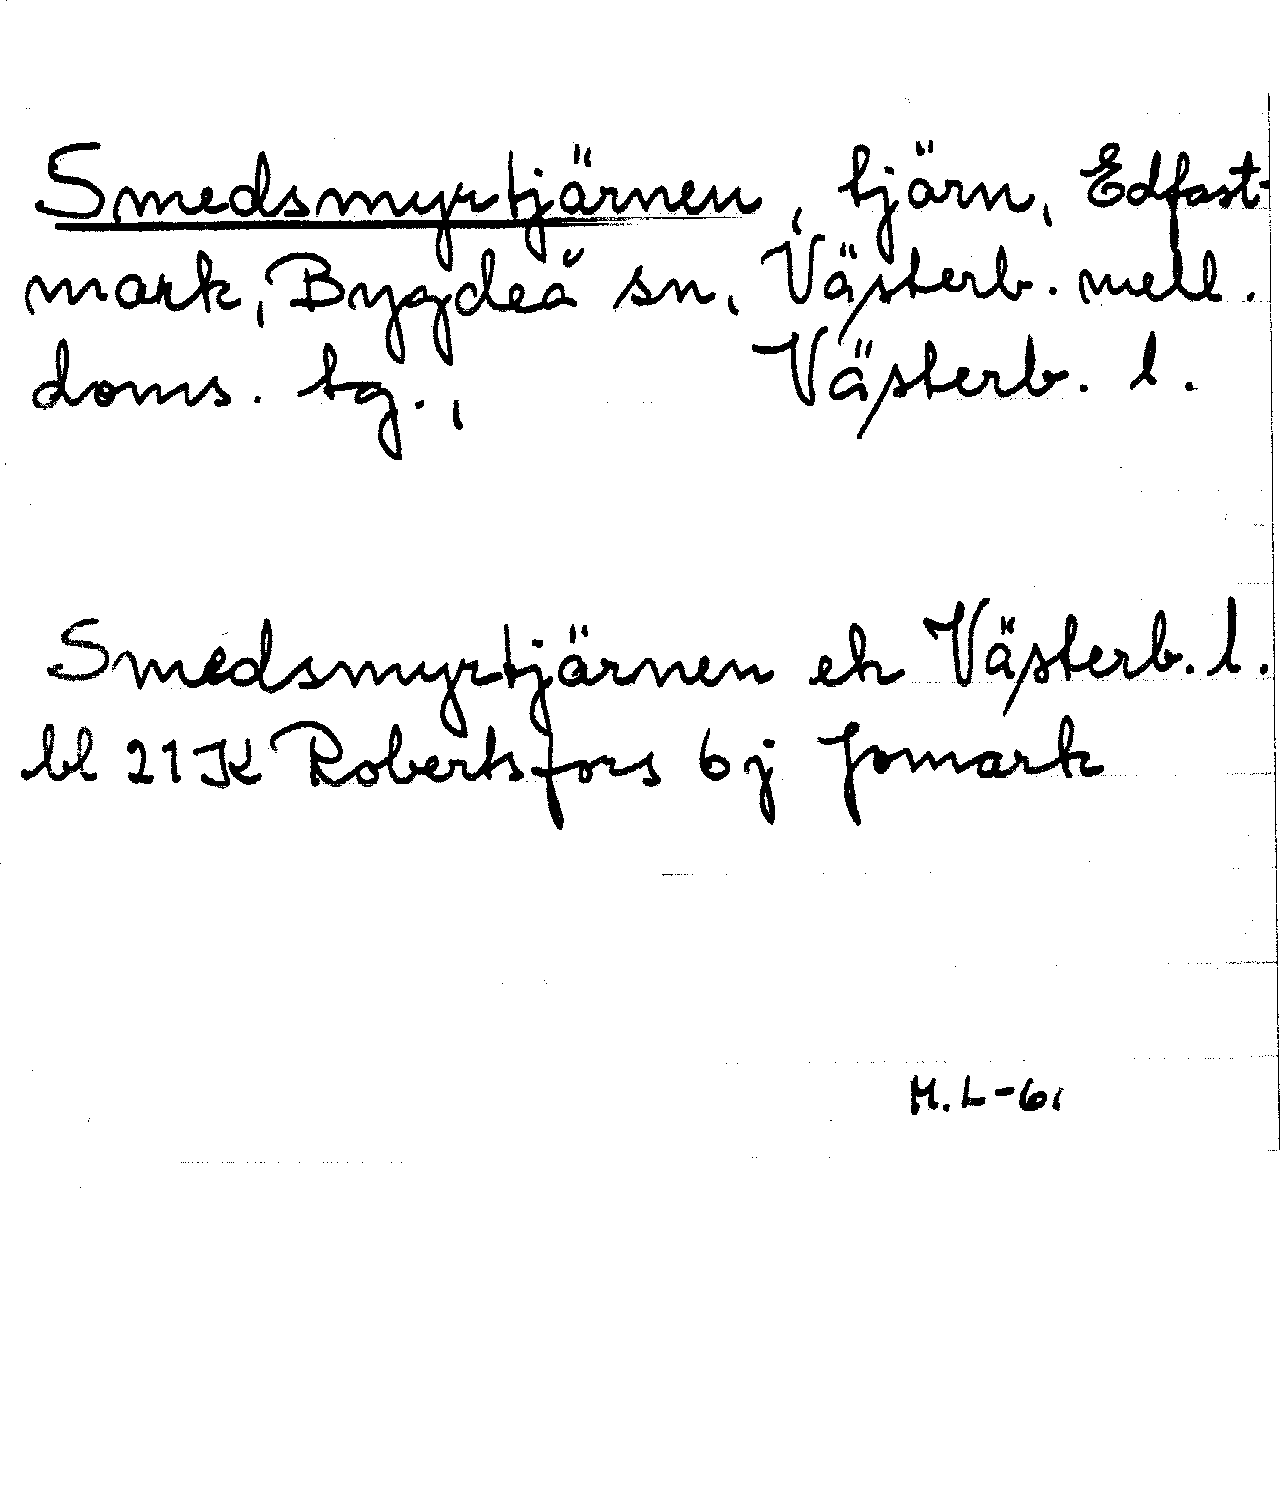 Smedsmyrtjärnen, tjärn, Edfast-
mark, Bygdeå sn, Västerb. mell.
doms. tg., Västerb. l.
Smedsmyrtjärnen ek Västerb. l.
bl 21 K Robertsfors 6 j Jomark
M. L-61